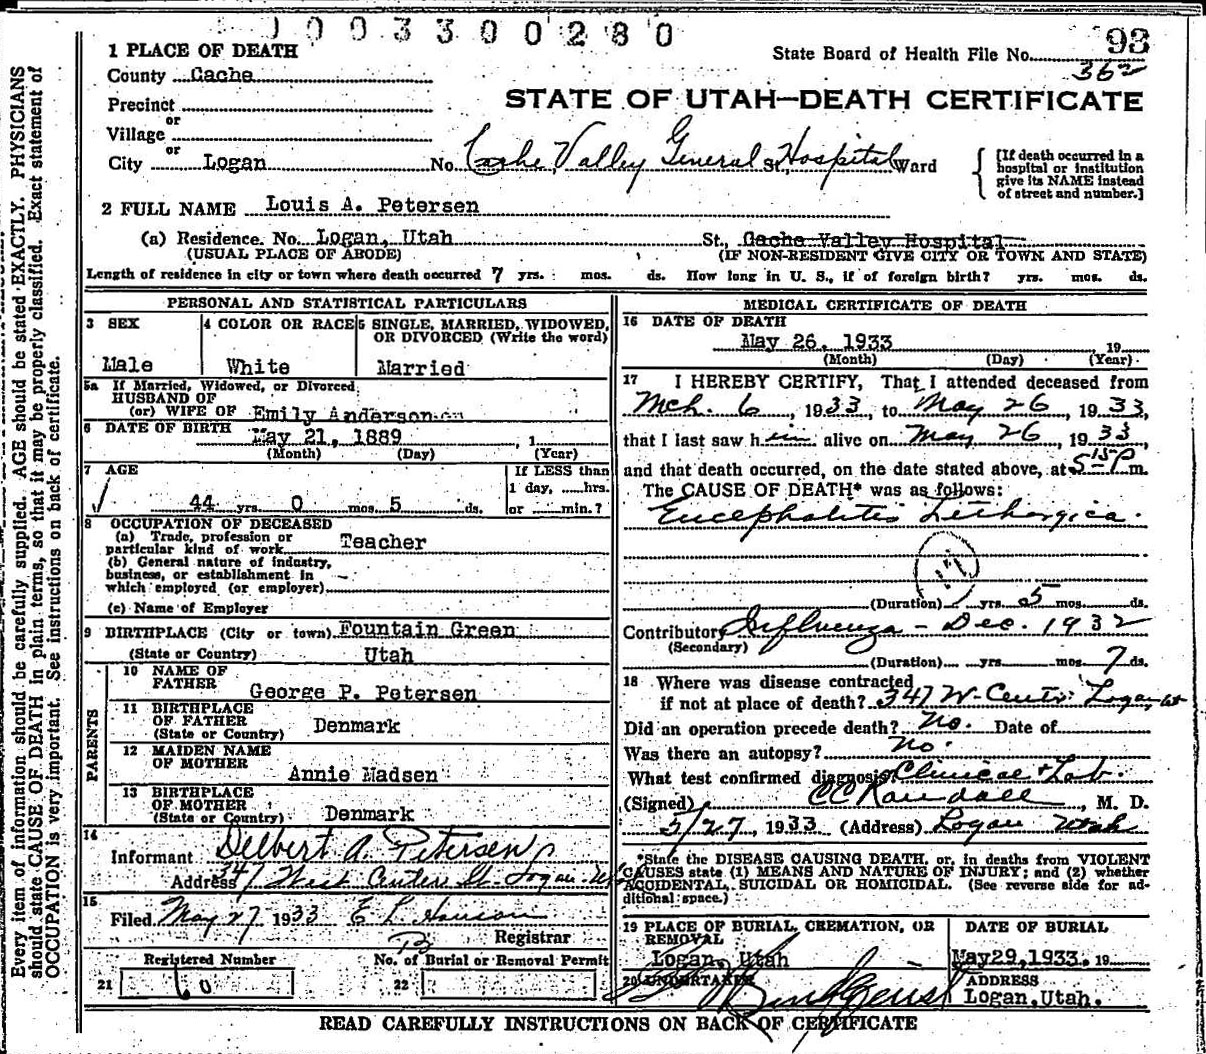 1003300280
1 PLACE OF DEATH
State Board of Health File No. 93
County Cache
362
STATE OF UTAH—DEATH CERTIFICATE
Precinct
or
Village
or
City Logan No. Cache Valley General St., Hospital Ward
[If death occurred in a hospital or institution give its NAME instead of street and number.]
2 FULL NAME Louis A. Petersen
(a) Residence. No. Logan, Utah St., Cache Valley Hospital
(USUAL PLACE OF ABODE) (IF NON-RESIDENT GIVE CITY OR TOWN AND STATE)
Length of residence in city or town where death occurred 7 yrs. mos. ds. How long in U. S., if of foreign birth? yrs. mos. ds.
PERSONAL AND STATISTICAL PARTICULARS
3 SEX
Male
4 COLOR OR RACE
White
5 SINGLE, MARRIED, WIDOWED,
OR DIVORCED (Write the word)
Married
5a If Married, Widowed, or Divorced
HUSBAND OF
(or) WIFE OF Emily Anderson
6 DATE OF BIRTH May 21, 1889 , 1
(Month) (Day) (Year)
7 AGE
44 yrs. 0 mos. 5 ds.
If LESS than
1 day, hrs.
or min.?
8 OCCUPATION OF DECEASED
(a) Trade, profession or
particular kind of work Teacher
(b) General nature of industry,
business, or establishment in
which employed (or employer)
(c) Name of Employer
9 BIRTHPLACE (City or town) Fountain Green
(State or Country) Utah
PARENTS
10 NAME OF
FATHER George P. Petersen
11 BIRTHPLACE
OF FATHER
(State or Country) Denmark
12 MAIDEN NAME
OF MOTHER
Annie Madsen
13 BIRTHPLACE
OF MOTHER
(State or Country) Denmark
14
Informant Delbert A. Petersen
Address 347 West Center St. Logan
15
Filed May 27 1933 E L Hanson
Registrar
Registered Number
21 60
No. of Burial or Removal Permit
22
MEDICAL CERTIFICATE OF DEATH
16 DATE OF DEATH
May 26, 1933 19
(Month) (Day) (Year)
17 I HEREBY CERTIFY, That I attended deceased from
Mch. 6, 1933, to May 26, 1933,
that I last saw him alive on May 26, 1933,
and that death occurred, on the date stated above, at 5 15 P m.
The CAUSE OF DEATH* was as follows:
Encephalitis Lethargica.
(Duration) yrs. 5 mos. ds.
Contributory Influenza - Dec. 1932
(Secondary)
(Duration) yrs. mos. 7 ds.
18 Where was disease contracted
if not at place of death? 347 W. Center Logan, Ut
Did an operation precede death? No. Date of
Was there an autopsy? no.
What test confirmed diagnosis? Clinical + Lab.
(Signed) CC Randall, M. D.
5/27, 1933 (Address) Logan Utah
*State the DISEASE CAUSING DEATH, or, in deaths from VIOLENT
CAUSES state (1) MEANS AND NATURE OF INJURY; and (2) whether
ACCIDENTAL, SUICIDAL OR HOMICIDAL. (See reverse side for ad-
ditional space.)
19 PLACE OF BURIAL, CREMATION, OR
REMOVAL
Logan, Utah
DATE OF BURIAL
May29,1933. 19
20 UNDERTAKER
ADDRESS
Logan,Utah.
READ CAREFULLY INSTRUCTIONS ON BACK OF CERTIFICATE
Every item of information should be carefully supplied. AGE should be stated EXACTLY. PHYSICIANS
should state CAUSE OF DEATH in plain terms, so that it may be properly classified. Exact statement of
OCCUPATION is very important. See instructions on back of certificate.